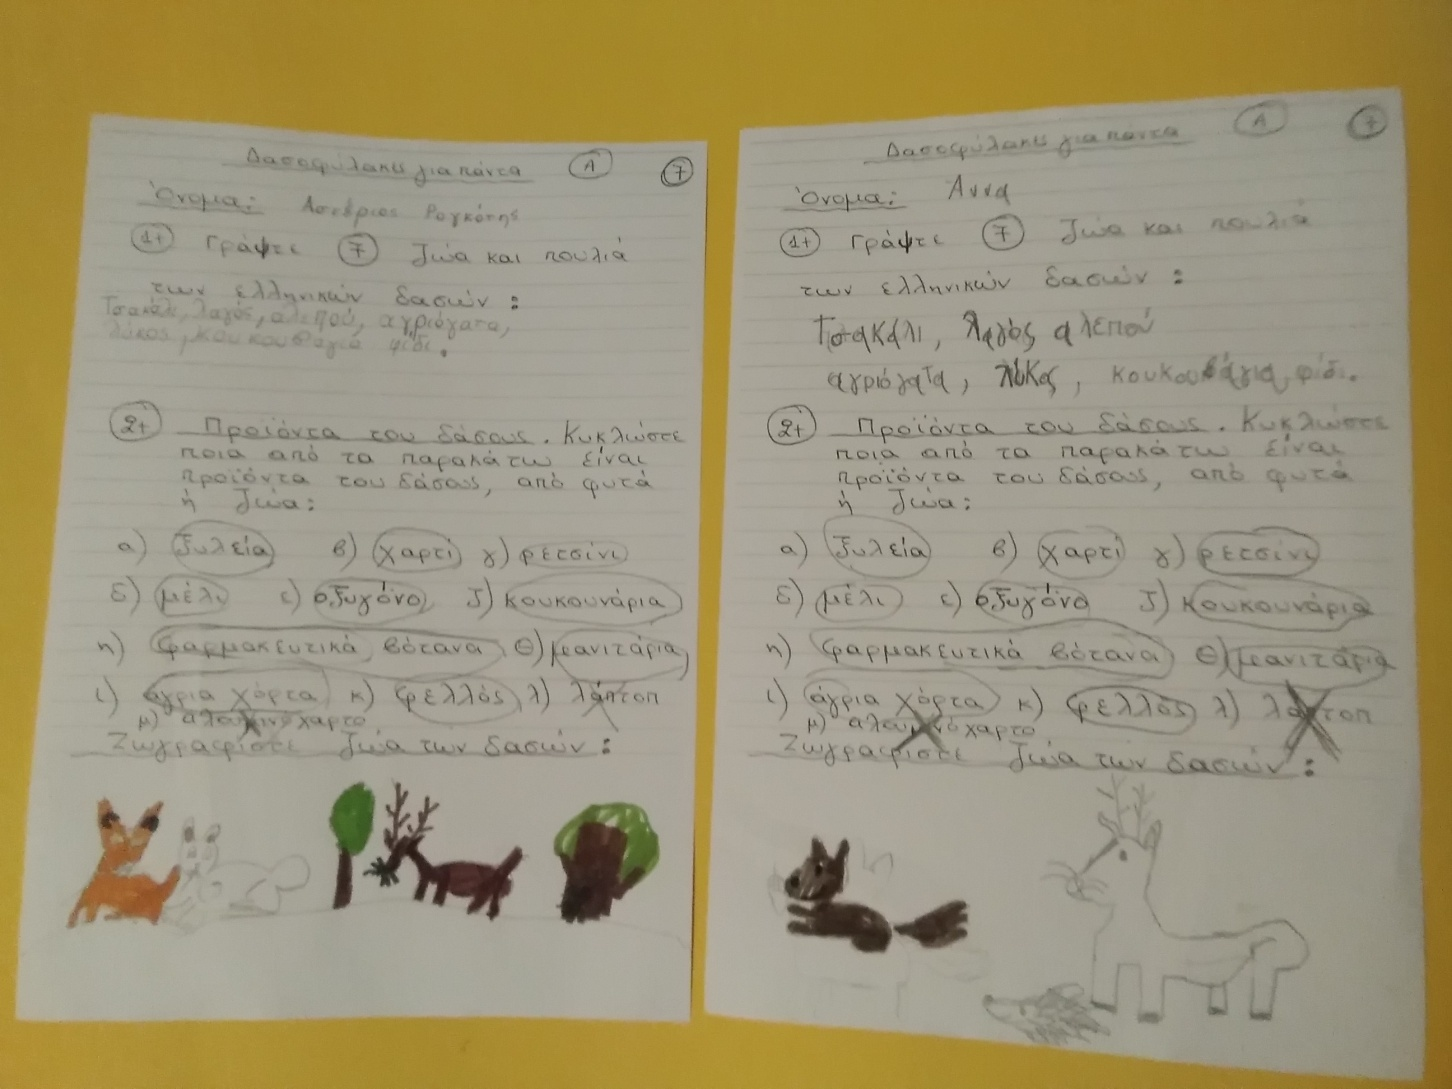 Δασοφύλακες για πάντα Α 7
Όνομα: Αστέριος Ρογκότης
1+ Γράψτε 7 ζώα και πουλιά
των ελληνικών δασών :
Τσακάλι, λαγός, αλεπού, αγριόγατα,
λύκος, κουκουβάγια φίδι.
2+ Προϊόντα του δάσους. Κυκλώστε
ποια από τα παρακάτω είναι
προϊόντα του δάσους, από φυτά
ή ζώα:
α) ξυλεία β) χαρτί γ) ρετσίνι
δ) μέλι ε) οξυγόνο ζ) κουκουνάρια
η) φαρμακευτικά βότανα θ) μανιτάρια
ι) άγρια χόρτα κ) φελλός λ) λάπτοπ
μ) αλουμινόχαρτο
Ζωγραφίστε ζώα των δασών :
Δασοφύλακες για πάντα Α 7
Όνομα: Άννα
1+ Γράψτε 7 ζώα και πουλιά
των ελληνικών δασών :
Τσακάλι, λαγός αλεπού
αγριόγατα, λύκος, κουκουβάγια, φίδι.
2+ Προϊόντα του δάσους. Κυκλώστε
ποια από τα παρακάτω είναι
προϊόντα του δάσους, από φυτά
ή ζώα:
α) ξυλεία β) χαρτί γ) ρετσίνι
δ) μέλι ε) οξυγόνο ζ) κουκουνάρια
η) φαρμακευτικά βότανα θ) μανιτάρια
ι) άγρια χόρτα κ) φελλός λ) λάπτοπ
μ) αλουμινόχαρτο
Ζωγραφίστε ζώα των δασών :